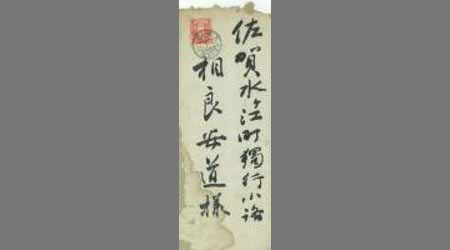 佐賀水江町獨行小路
相良安道様